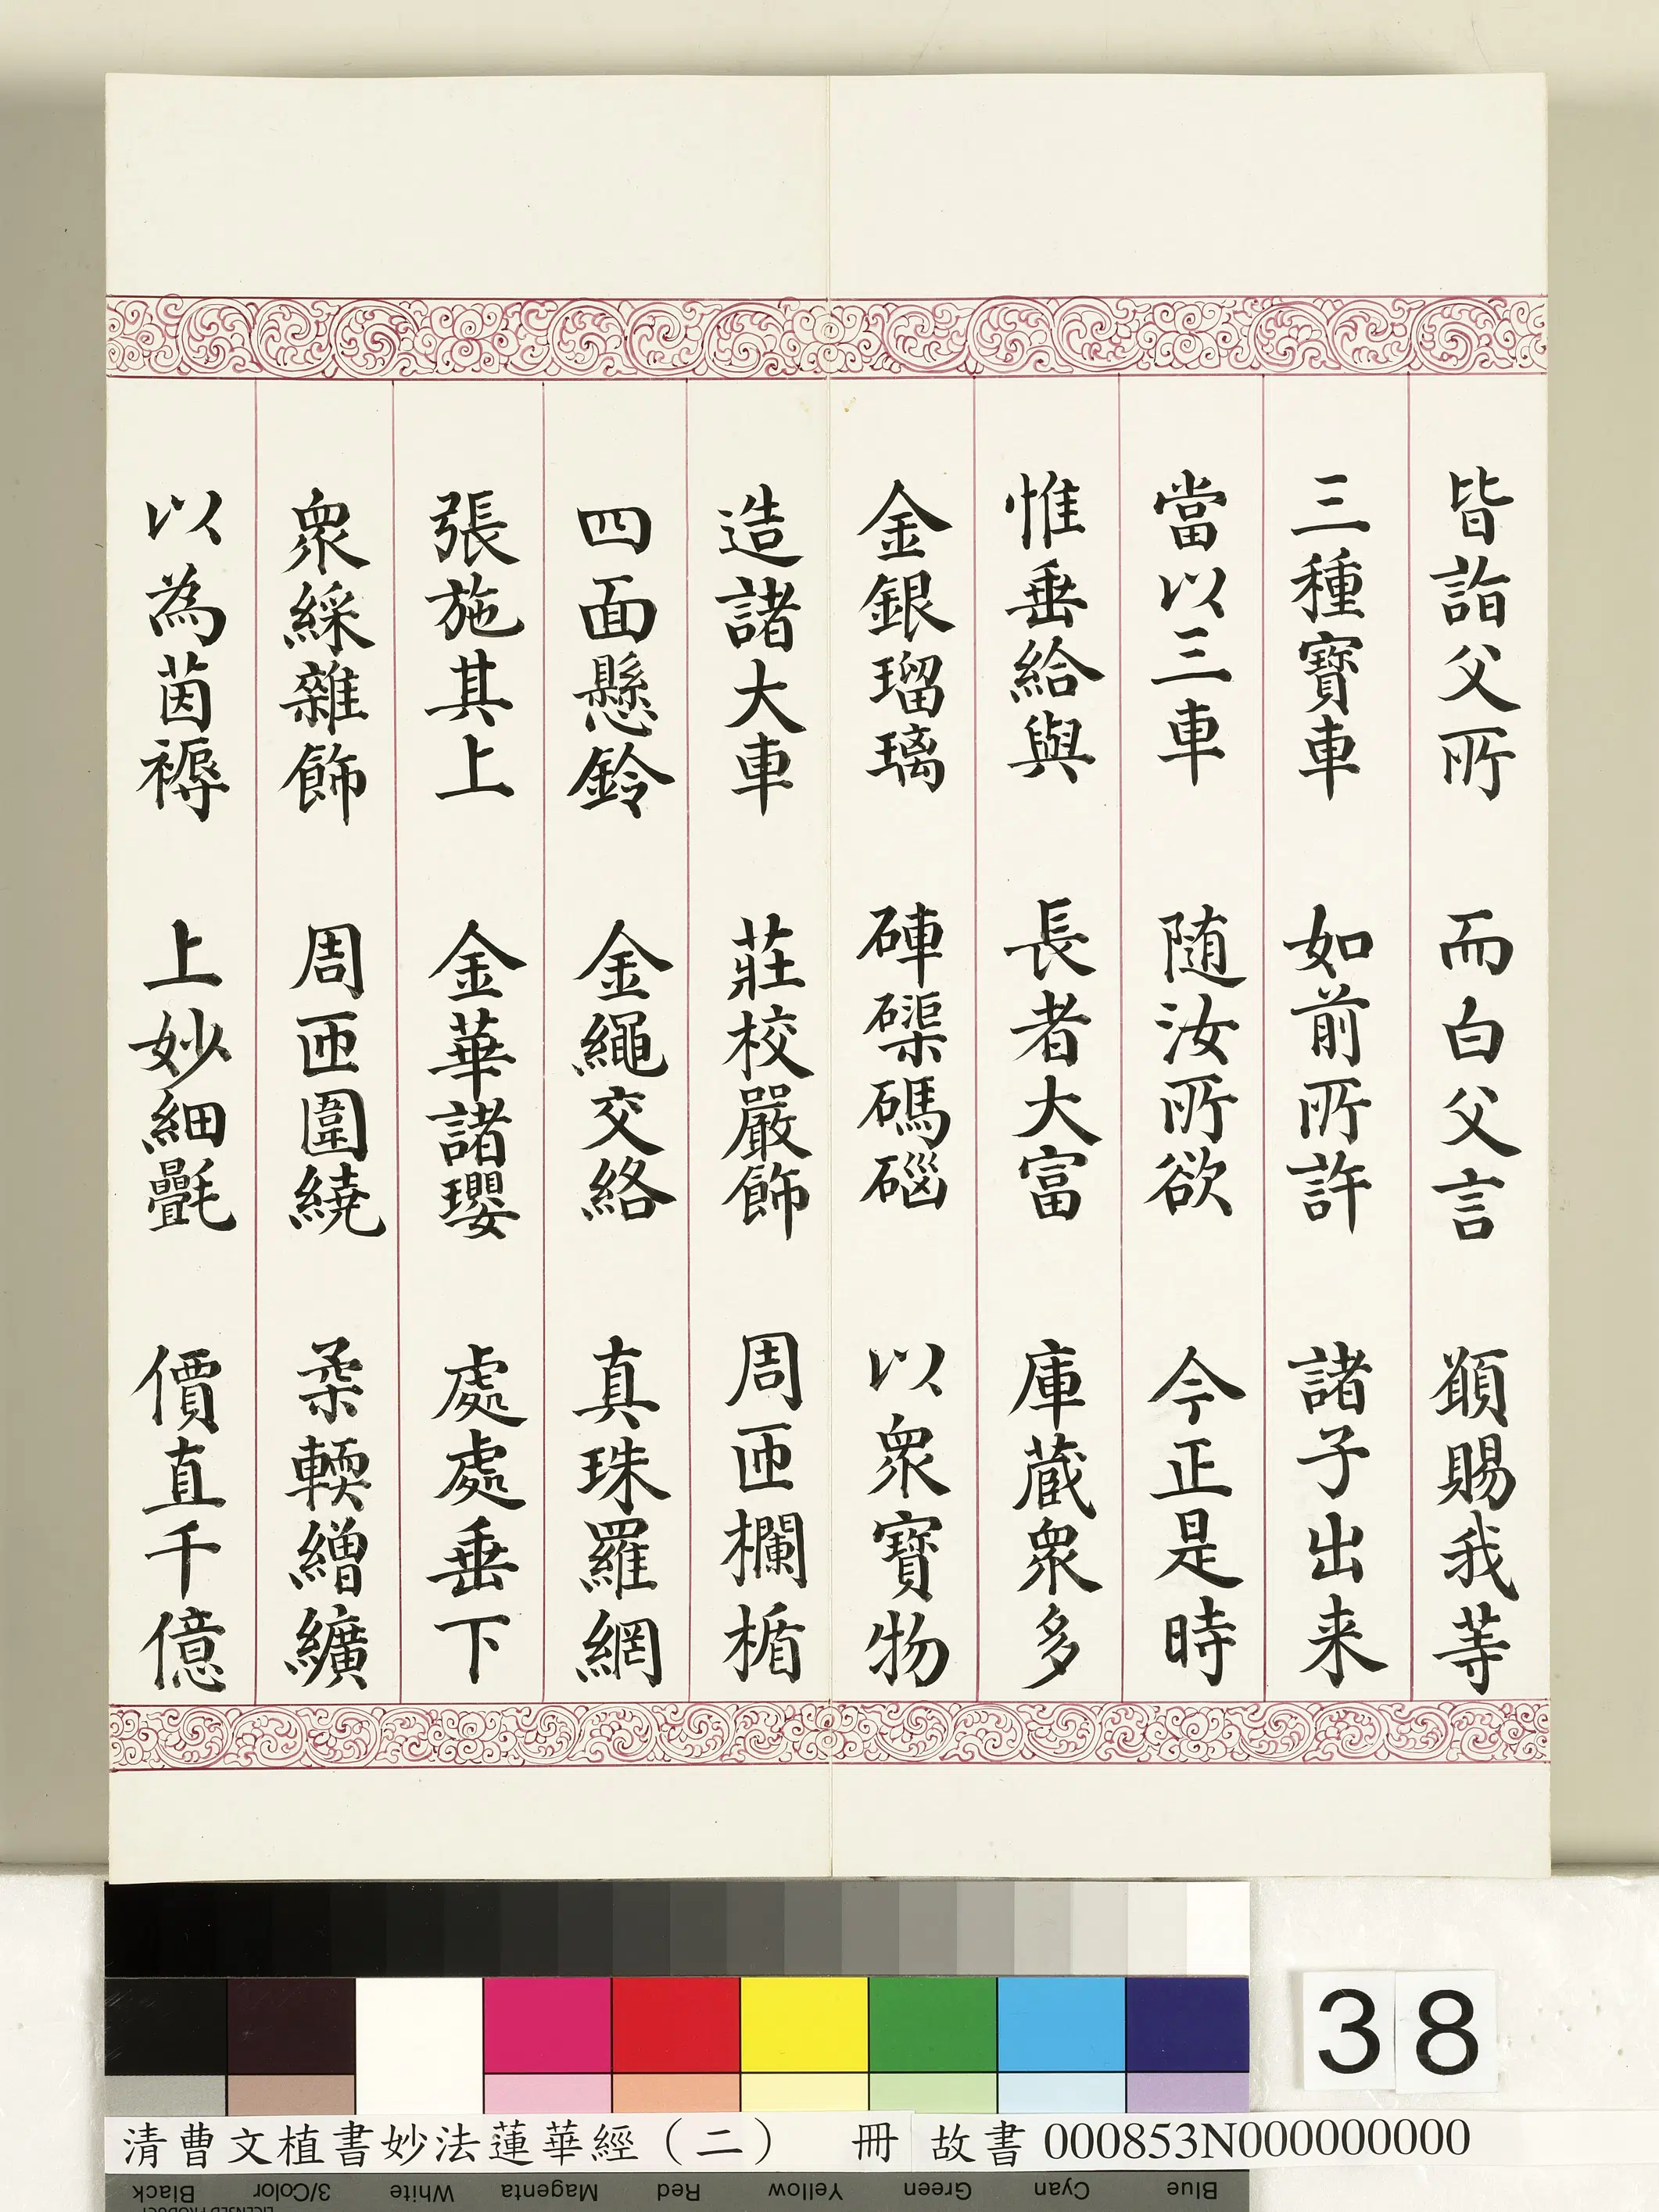 皆詣父所　而白父言　願賜我等
三種寶車　如前所許　諸子出来
當以三車　随汝所欲　今正是時
惟垂給與　長者大富　庫蔵衆多
金銀瑠璃　硨磲碼碯　以衆寶物
造諸大車　莊校嚴飾　周匝欄楯
四面懸鈴　金繩交絡　真珠羅網
張施其上　金華諸瓔　處處垂下
衆綵雜飾　周匝圍繞　柔輭繒纊
以為茵褥　上妙細氎　價直千億
38
清曹文植書妙法蓮華經（二）　冊　故書 000853N000000000
Black 3/Color White Magenta Red Yellow Green Cyan Blue